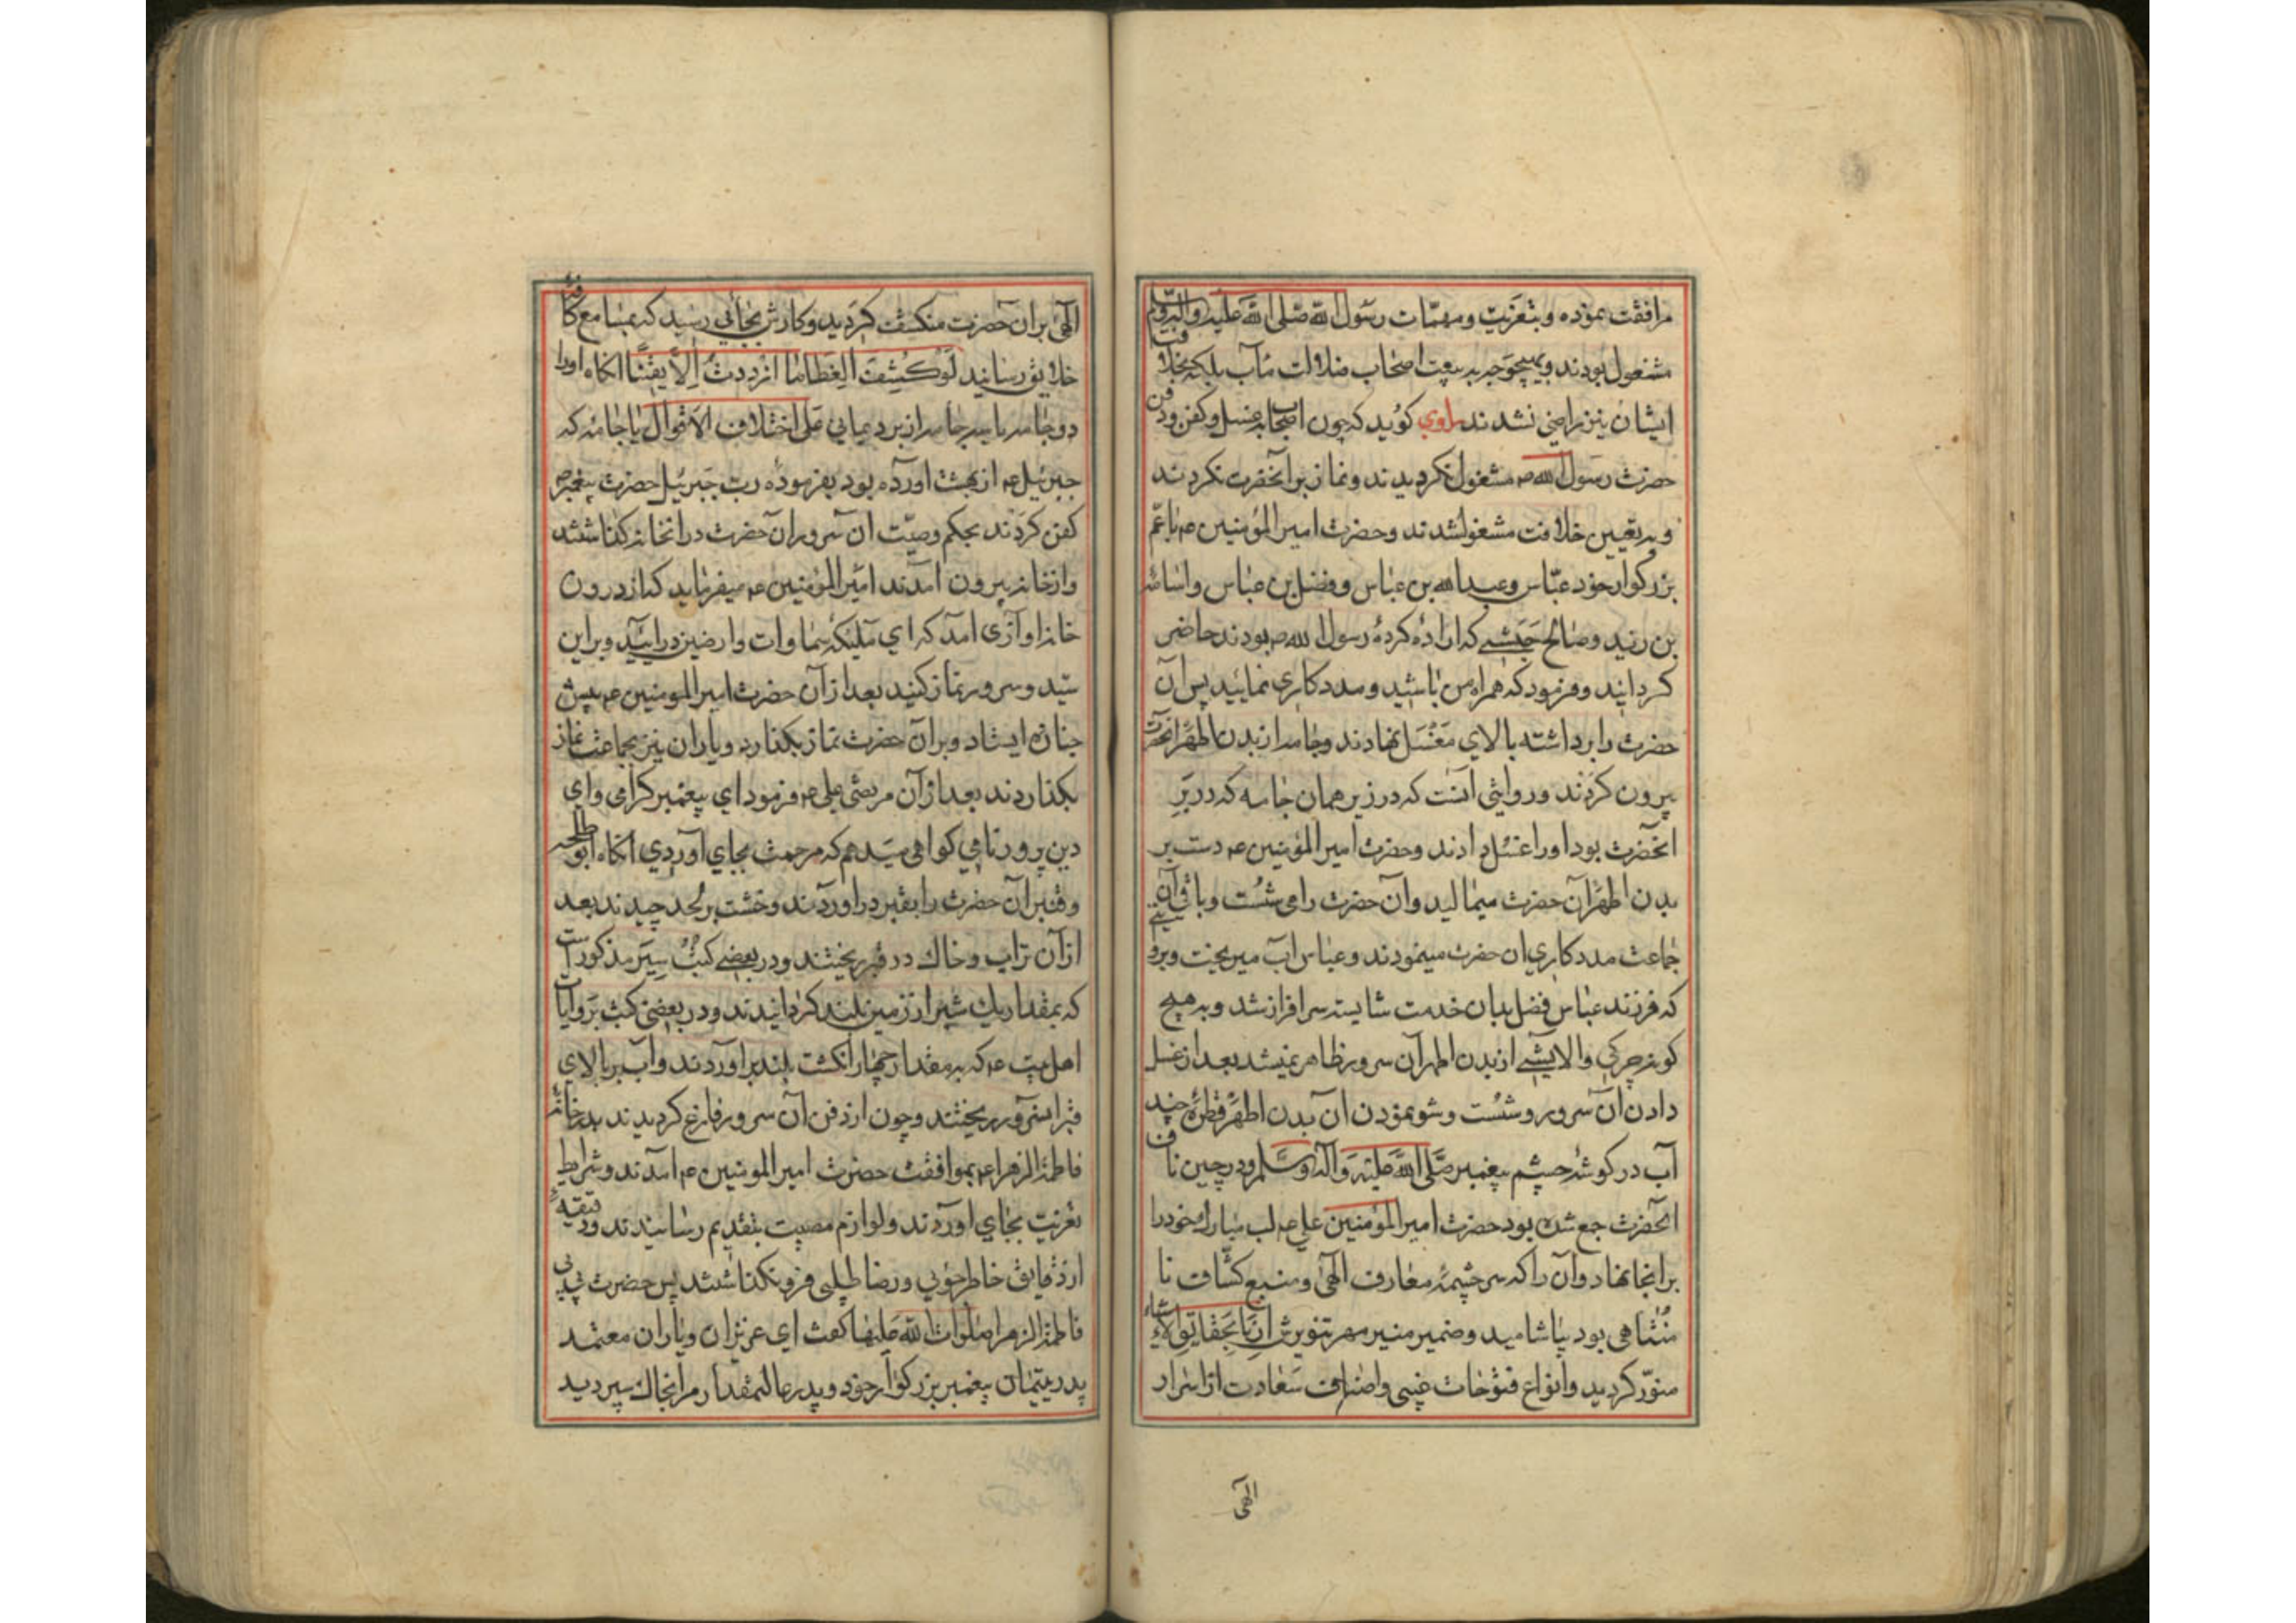 مرافقت نموده و بتعزیت و مهمّات رسول الله صلی الله علیه و آله وسلم
مشغول بودند و بهیچوجه به بیعت اصحاب ضلالت مآب بلکه بخلافت
ایشان نیز راضی نشدند راوی کوید که چون اصحاب بغسل و کفن و دفن
حضرت رسول الله ص مشغول نکردیدند و نماز بر آنحضرت نکردند
و به تعیین خلافت مشغولشدند و حضرت امیر المؤمنین ع با عمّ
بزرکوار خود عبّاس و عبد الله بن عباس و فضل بن عباس و اسامه
بن زید و صالح حبشی که ازاده کردهٔ رسول الله ص بودند حاضر
کردانیند و فرمود که همراه من باشید و مددکاری نمایید پس آن
حضرت را برداشته بالای مغتسل نهادند و جامه از بدن اطهر آنحضرت
بیرون کردند و روایتی آنست که در زیر همان جامه که در بر
آنحضرت بود اورا غسل دادند و حضرت امیر المؤمنین ع دست بر
بدن اطهر آن حضرت میمالید و آن حضرت را می شست و باقی آن
جماعت مددکاری ان حضرت مینمودند و عباس آب میریخت و بروایتی
که فرزند عباس فضل بدان خدمت شایسته سرافراز شد و به هیچ
کونه چرکی و الایشی از بدن اطهر آن سرور ظاهر نمیشد بعد از غسل
دادن آن سرور و شست و شو نمودن ان بدن اطهر قطرهٔ چند
آب در کوشهٔ چشم پیغمبر صلی الله علیه وآله وسلم و در چین ناف
آنحضرت جمع شده بود حضرت امیر المؤمنین علی ع لب مبارک خود را
بر انجا نهاد و آن را که سرچشمهٔ معارف الهی و منبع کشّاف نا
متناهی بود بیاشامید و ضمیر منیر مهر تنویرش ازنا بحقایق الاشیاء
منوّر کردید و انواع فتوحات غیبی و اصناف سعادت از اسرار
الهی
الهی بران حضرت منکشف کردید و کارش بجائی رسید که بمسامع کافهٔ
خلایق رسانید لو کشف الغطا ما ازددت الا یقینا انکاه اورا
دو جامه یا سه جامه از برد یمانی علی اختلاف الاقوال یا جامهٔ که
جبرئیل ع از بهشت اورده بود بفرمودهٔ رب جبرئیل حضرت پیغمبر ص
کفن کردند بحکم وصیّت ان سرور آن حضرت در انخانه کذاشتند
و از خانه بیرون آمدند امیر المؤمنین ع میفرماید که از درون
خانه اوازی امد که ای ملیکهٔ سماوات و ارضین درایید و بر این
سیّد و سرور نماز کنید بعد از آن حضرت امیر المومنین ع پیش
جنازه ایستاد و بر آن حضرت نماز بکذارد و یاران نیز بجماعت نماز
بکذاردند بعد از آن مرتضی علی ع فرمود ای پیغمبر کرامی و ای
دین پرور نامی کواهی میدهم که مرحمت بجای آوردی انکاه ابو طلحه
و قنبر آن حضرت را بقبر در اوردند و خشت بر لحد چیدند بعد
از آن تراب و خاک در قبر ریختند و در بعضی کتب سیر مذکور است
که بمقدار یک شبر از زمین بلند کردانیدند و در بعضی کتب بروایات
اهل بیت ع که به مقدار چهار انکشت بلند بر اوردند و آب بر بالای
قبر انسرور ریختند و چون از دفن آن سرور فارغ کردیدند بدر خانهٔ
فاطمة الزهرا ع بموافقت حضرت امیر المومنین ع آمدند و شرایط
تعزیت بجای اوردند و لوازم مصیبت بتقدیم رسانیدند و دقیقهٔ
از دقایق خاطر جوئی و رضا طلبی فرو نکذاشتند پس حضرت بی بی
فاطمة الزهرا صلوات الله علیها کفت ای عزیزان و یاران معتمد
پدر یتیمان پیغمبر بزرکوار خود و پدر عالیمقدار مرا بخاک سپردید